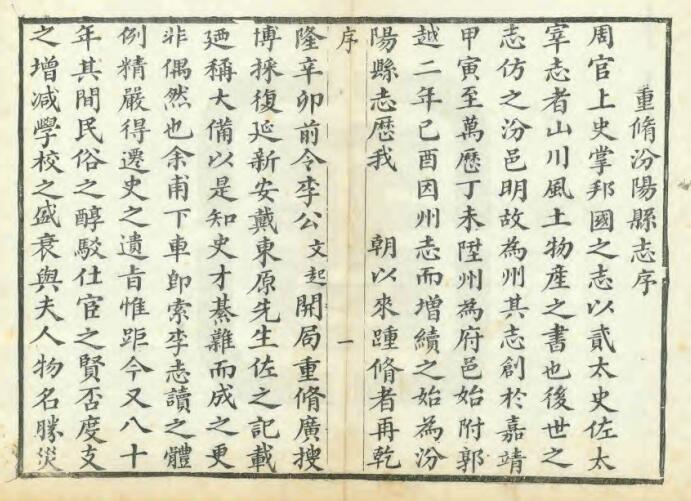 重脩汾陽縣志序
周官上史掌邦國之志以貳太史佐太
宰志者山川風土物産之書也後世之
志仿之汾邑明故為州其志創於嘉靖
甲寅至萬歷丁未陞州為府邑始附郭
越二年己酉因州志而增續之始為汾
陽縣志歷我　　朝以來踵脩者再乾
序　一
隆辛卯前令李公文起開局重脩廣搜
博採復延新安戴東原先生佐之記載
廼稱大備以是知史才綦難而成之更
非偶然也余甫下車即索李志讀之體
例精嚴得遷史之遺旨惟距今又八十
年其間民俗之醇駁仕官之賢否度支
之增減學校之盛衰與夫人物名勝災